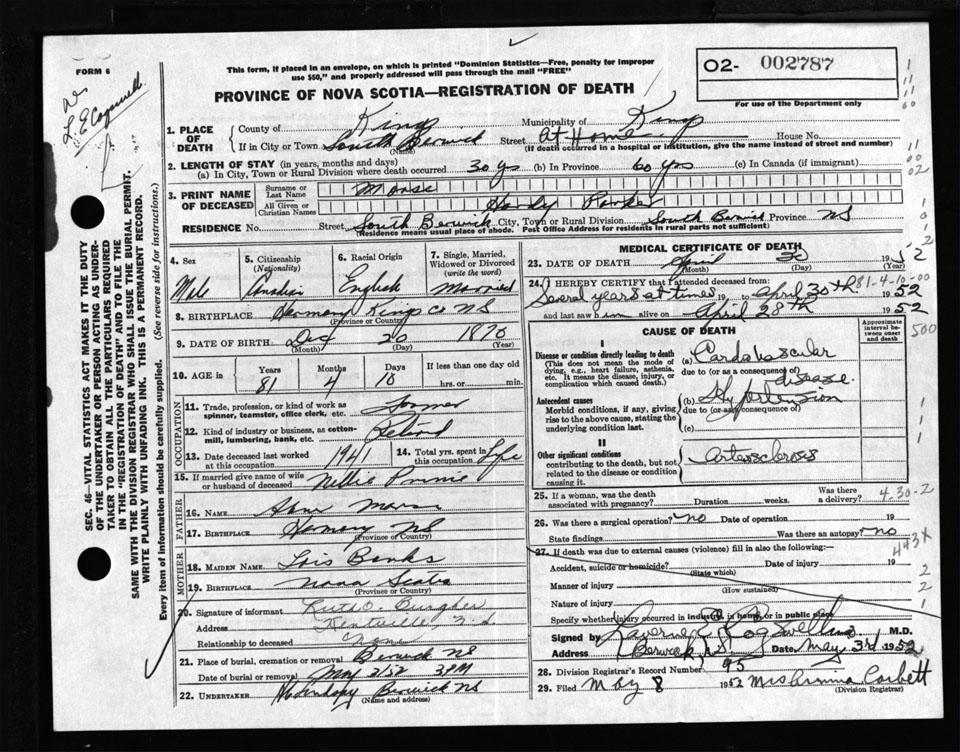 FORM 6
This form, if placed in an envelope, on which is printed "Dominion Statistics—Free, penalty for improper
use $50," and properly addressed will pass through the mail "FREE"
PROVINCE OF NOVA SCOTIA—REGISTRATION OF DEATH
O2- 002787
For use of the Department only
SEC. 46—VITAL STATISTICS ACT MAKES IT THE DUTY
OF THE UNDERTAKER OR PERSON ACTING AS UNDER-
TAKER TO OBTAIN ALL THE PARTICULARS REQUIRED
IN THE "REGISTRATION OF DEATH" AND TO FILE THE
SAME WITH THE DIVISION REGISTRAR WHO SHALL ISSUE THE BURIAL PERMIT.
WRITE PLAINLY WITH UNFADING INK. THIS IS A PERMANENT RECORD.
Every item of information should be carefully supplied. (See reverse side for instructions.)
1. PLACE OF DEATH
County of Kings Municipality of Kings
If in City or Town South Berwick Street At Home House No.
(Name) (If death occurred in a hospital or institution, give the name instead of street and number)
2. LENGTH OF STAY (in years, months and days)
(a) In City, Town or Rural Division where death occurred 30 yrs (b) In Province 60 yrs (c) In Canada (if immigrant)
3. PRINT NAME OF DECEASED
Surname or Last Name Morse
All Given or Christian Names Handy Parker
RESIDENCE No. Street South Berwick City, Town or Rural Division South Berwick Province NS
(Residence means usual place of abode. Post Office Address for residents in rural parts not sufficient)
4. Sex Male
5. Citizenship (Nationality) Canadian
6. Racial Origin English
7. Single, Married, Widowed or Divorced (write the word) Married
8. BIRTHPLACE Harmony Kings Co NS
(Province or Country)
9. DATE OF BIRTH Dec 20 1870
(Month) (Day) (Year)
10. AGE in Years 81 Months 4 Days 10 If less than one day old
hrs. or min.
OCCUPATION
11. Trade, profession, or kind of work as
spinner, teamster, office clerk, etc. Farmer
12. Kind of industry or business, as cotton-
mill, lumbering, bank, etc. Retired
13. Date deceased last worked
at this occupation 1941
14. Total yrs. spent in
this occupation Life
15. If married give name of wife
or husband of deceased Nellie
FATHER
16. NAME Morse
17. BIRTHPLACE Harmony NS
(Province or Country)
MOTHER
18. MAIDEN NAME Lois Banks
19. BIRTHPLACE Nova Scotia
(Province or Country)
20. Signature of informant Ruth O. Burgher
Address Kentville, N.S.
Relationship to deceased None
21. Place of burial, cremation or removal Berwick NS
Date of burial or removal May 3/52 3 PM
22. UNDERTAKER Berwick NS
(Name and address)
MEDICAL CERTIFICATE OF DEATH
23. DATE OF DEATH April 30 1952
(Month) (Day) (Year)
24. I HEREBY CERTIFY that I attended deceased from: 81-4-10-00
Several years at times 19 to April 30th 1952
and last saw him alive on April 28th 1952
CAUSE OF DEATH
Approximate
interval be-
tween onset
and death
500
I
Disease or condition directly leading to death
(This does not mean the mode of
dying, e.g., heart failure, asthenia,
etc. It means the disease, injury, or
complication which caused death.)
(a) Cardavascular
due to (or as a consequence of)
disease.
Antecedent causes
Morbid conditions, if any, giving
rise to the above cause, stating the
underlying condition last.
(b) Hypertension
due to (or as a consequence of)
(c)
II
Other significant conditions
contributing to the death, but not
related to the disease or condition
causing it.
Arterosclerosis
25. If a woman, was the death
associated with pregnancy? Duration weeks. Was there
a delivery? 4-30-2
26. Was there a surgical operation? no Date of operation 19
State findings Was there an autopsy? no
443X
27. If death was due to external causes (violence) fill in also the following:—
Accident, suicide or homicide? Date of injury 19
(State which)
Manner of injury
(How sustained)
Nature of injury
Specify whether injury occurred in industry, in home, or in public place
Signed by Cogswell M.D.
Address Berwick N.S. Date May 3rd 1952
28. Division Registrar's Record Number 95
29. Filed May 8 1952 Mrs Corbett
(Division Registrar)